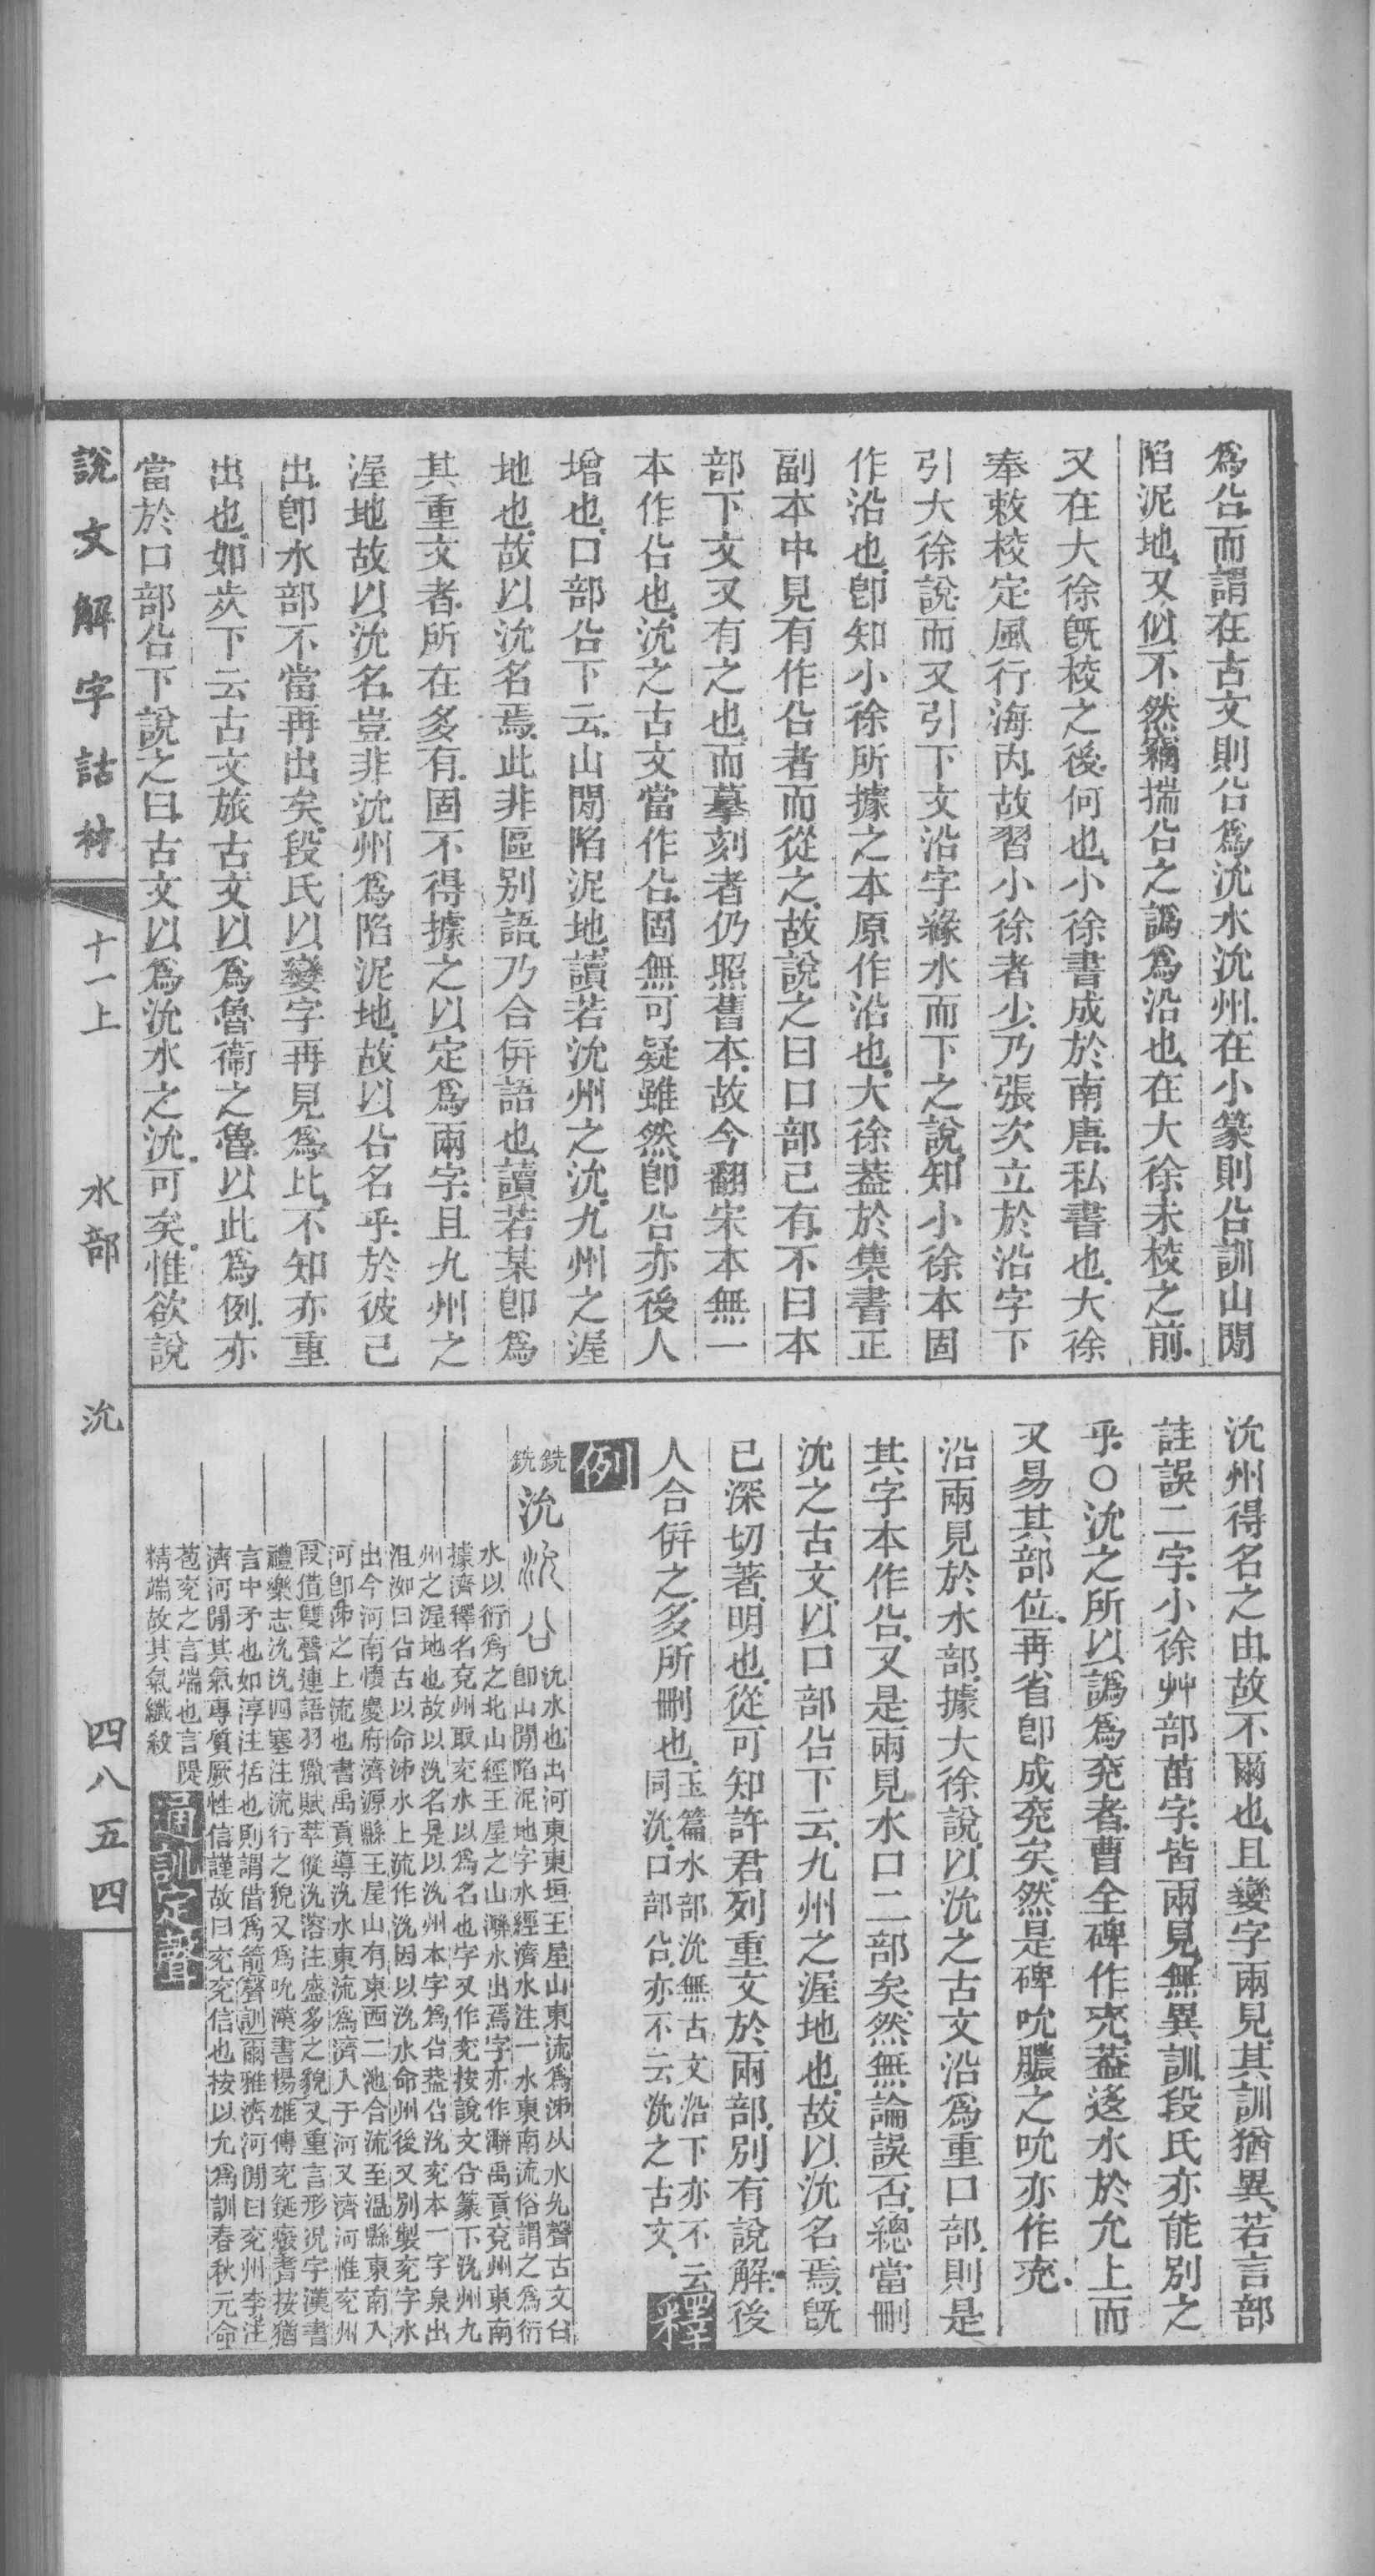 爲㕣而謂在古文則㕣爲沇水沇州在小篆則㕣訓山閒
陷泥地又似不然竊揣㕣之譌爲沿也在大徐未校之前
又在大徐旣校之後何也小徐書成於南唐私書也大徐
奉敕校定風行海內故習小徐者少乃張次立於沿字下
引大徐說而又引下文沿字緣水而下之說知小徐本固
作沿也卽知小徐所據之本原作沿也大徐葢於集書正
副本中見有作㕣者而從之故說之曰口部已有不曰本
部下文又有之也而摹刻者仍照舊本故今翻宋本無一
本作㕣也沇之古文當作㕣固無可疑雖然卽㕣亦後人
增也口部㕣下云山閒陷泥地讀若沇州之沇九州之渥
地也故以沇名焉此非區別語乃合倂語也讀若某卽爲
其重文者所在多有固不得據之以定爲兩字且九州之
渥地故以沇名豈非沇州爲陷泥地故以㕣名乎於彼已
出卽水部不當再出矣段氏以㜻字再見爲比不知亦重
出也如㫃下云古文旅古文以爲魯衞之魯以此爲例亦
當於口部㕣下說之曰古文以爲沇水之沇可矣惟欲說
沇州得名之由故不爾也且㜻字兩見其訓猶異若言部
詿誤二字小徐艸部苖字皆兩見無異訓段氏亦能別之
乎○沇之所以譌爲兖者曹全碑作兖葢迻水於允上而
又易其部位再省卽成兖矣然是碑吮膿之吮亦作兖
沿兩見於水部據大徐說以沇之古文沿爲重口部則是
其字本作㕣又是兩見水口二部矣然無論誤否總當刪
沇之古文以口部㕣下云九州之渥地也故以沇名焉旣
已深切著明也從可知許君列重文於兩部別有說解後
人合倂之多所刪也玉篇水部沇無古文沿下亦不云同沇口部㕣亦不云沇之古文釋
例
銑銑沇㕣沇水也出河東東垣王屋山東流爲泲从水允聲古文㕣
卽山閒陷泥地字水經濟水注一水東南流俗謂之爲衍
水以衍爲之北山經王屋之山㶕水出焉字亦作㶕禹貢兖州東南
據濟釋名兖州取兖水以爲名也字又作兖按說文㕣篆下沇州九
州之渥地也故以沇名是以沇州本字爲㕣葢㕣沇兖本一字泉出
沮洳曰㕣古以命泲水上流作沇因以沇水命州後又別製兖字水
出今河南懷慶府濟源縣王屋山有東西二池合流至温縣東南入
河卽泲之上流也書禹貢導沇水東流爲濟入于河又濟河惟兖州
叚借雙聲連語羽獵賦萃傱沇溶注盛多之貌又重言形況字漢書
禮樂志沇沇四塞注流行之貌又爲吮漢書楊雄傳兖鋋瘢耆按猶
言中矛也如淳注括也則謂借爲箭聲訓爾雅濟河閒曰兖州李注
濟河閒其氣專質厥性信謹故曰兖兖信也按以允爲訓春秋元命
苞兖之言端也言隄
精端故其氣纖殺通訓定聲
說文解字詁林
十一上
水部
沇
四八五四